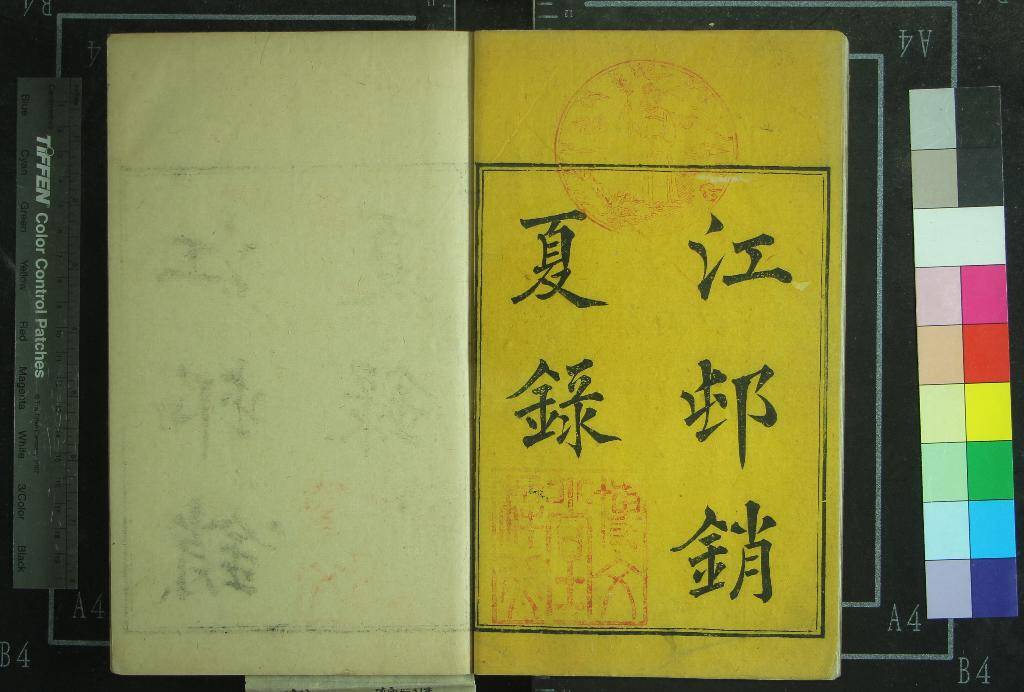 江邨銷
夏錄
TIFFEN Color Control Patches
Blue
Cyan
Green
Yellow
Red
Magenta
White
3/Color
Black
A4
A4
A4
A4
B4
B4
B4